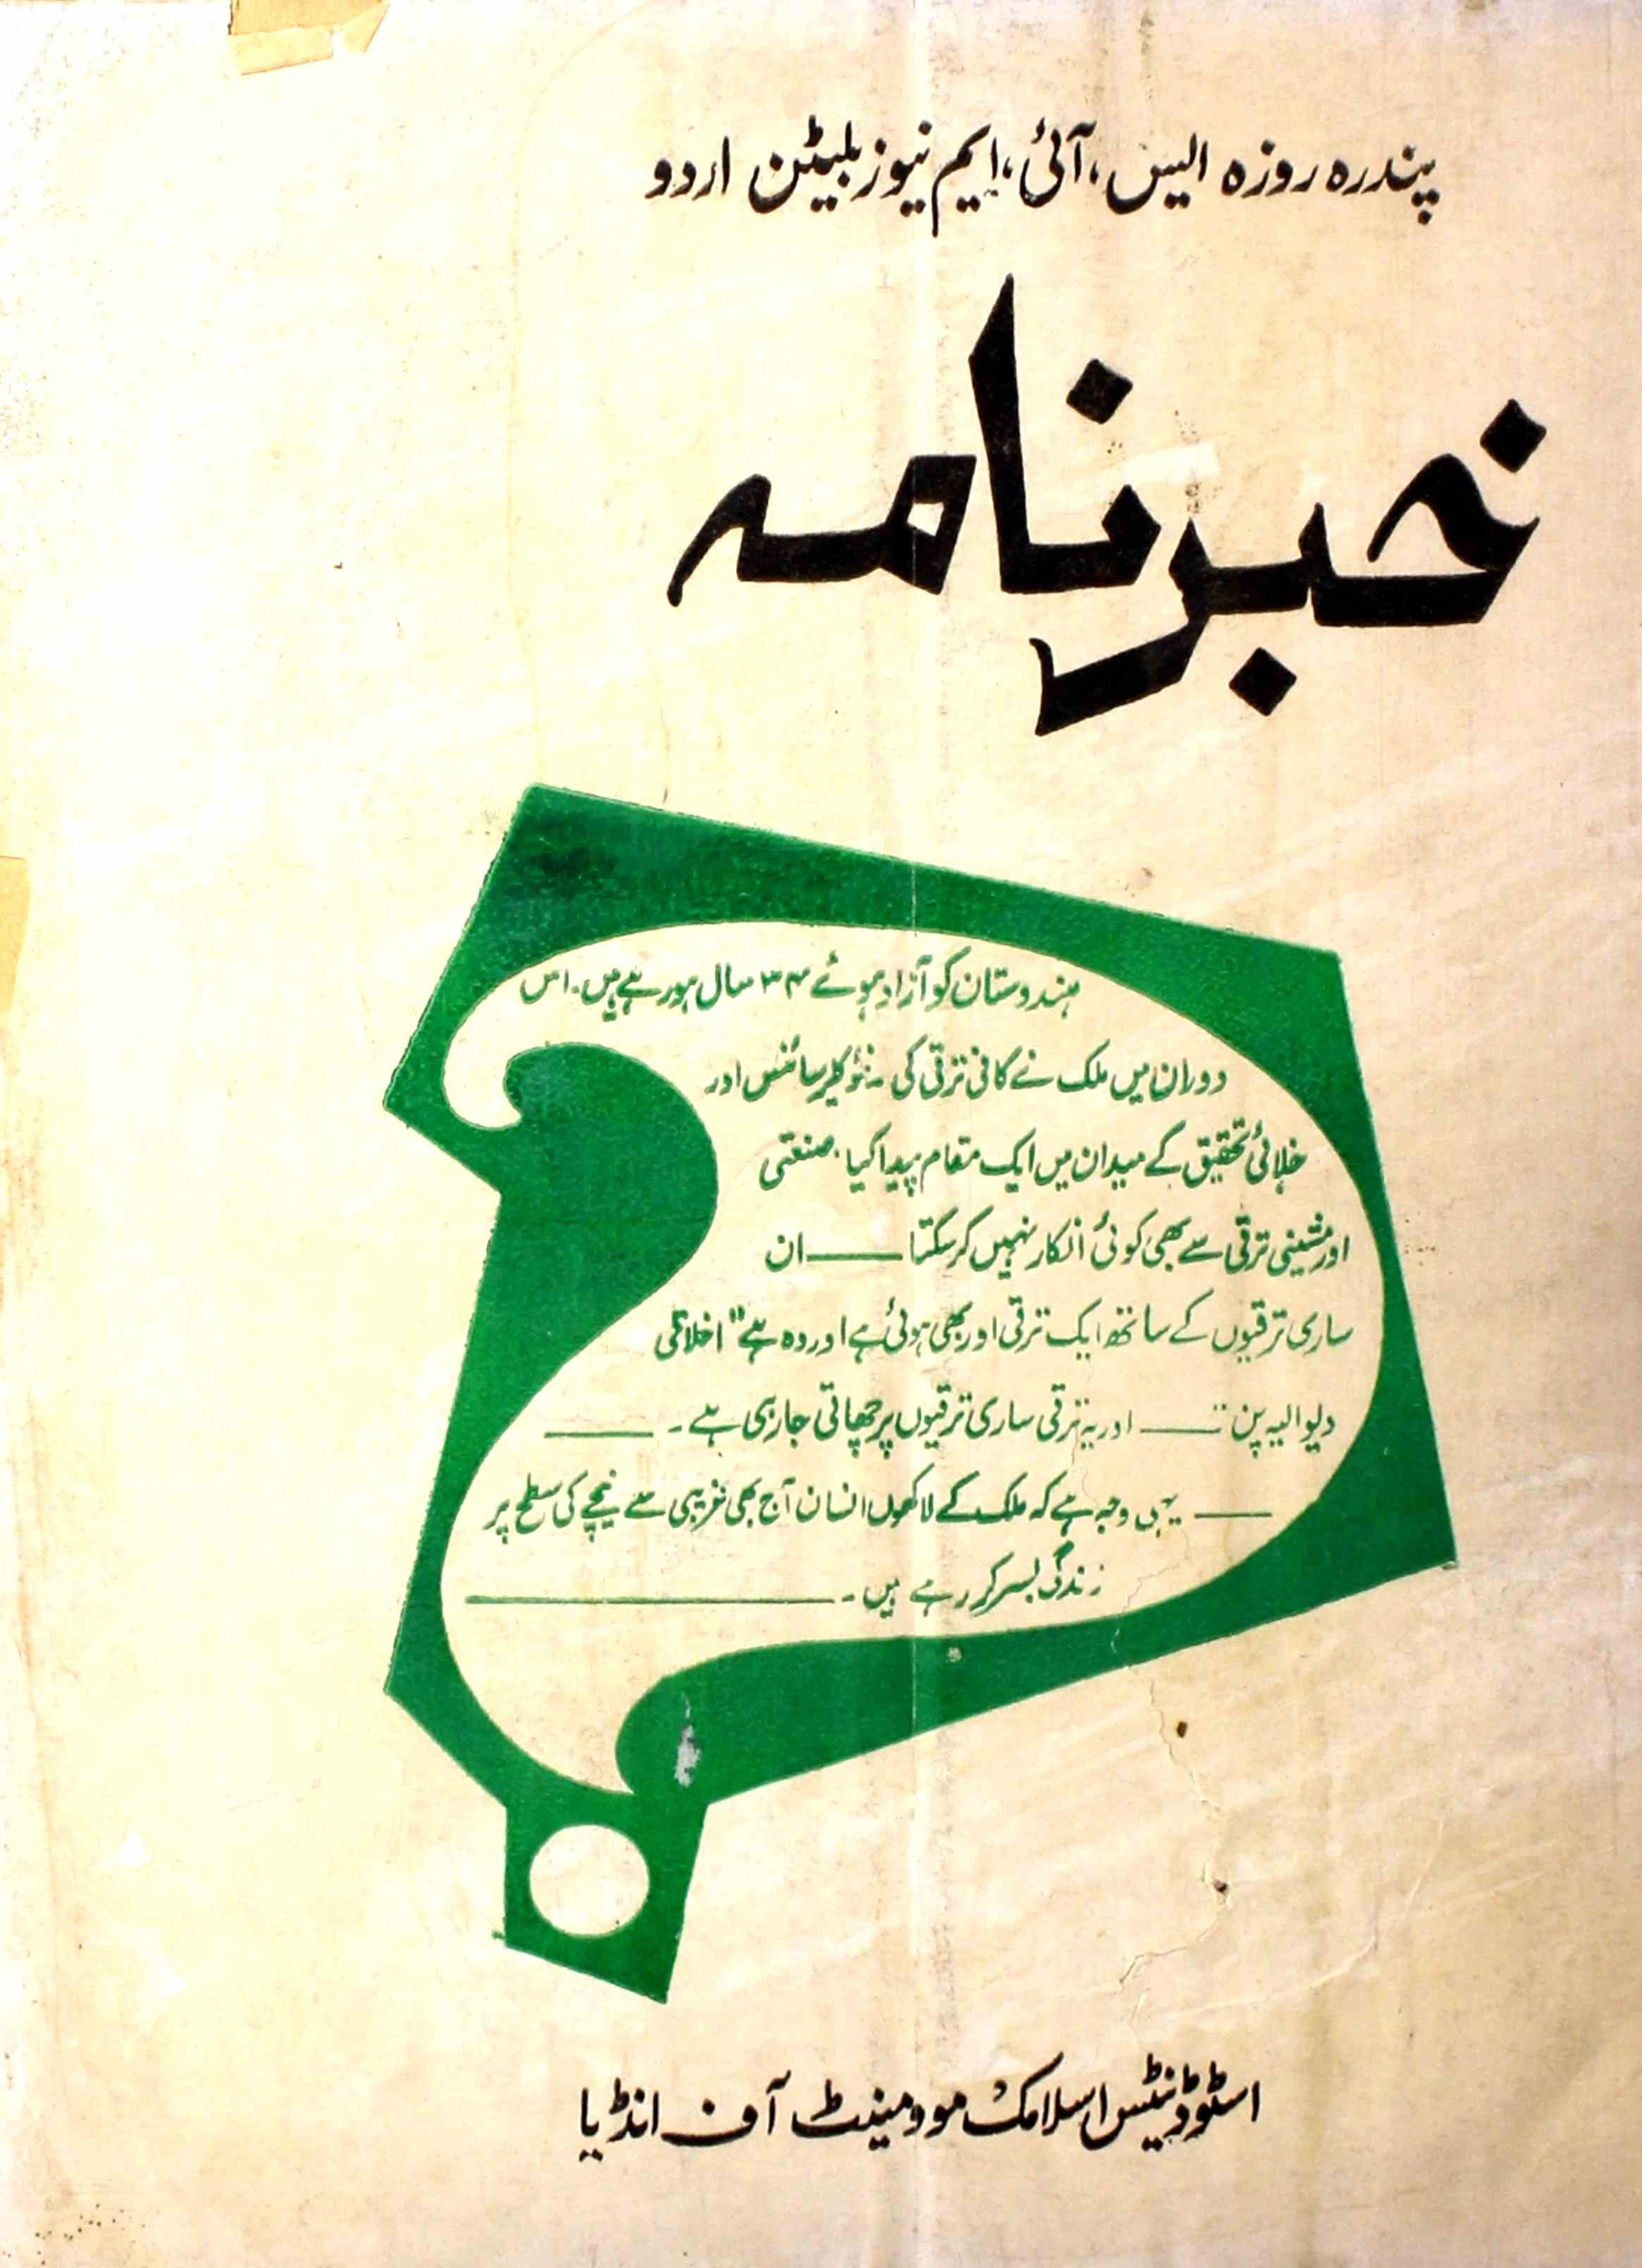 پندرہ روزہ ایس، آئی، ایم نیوز بلیٹن اردو
خبرنامہ
ہندوستان کو آزاد ہوئے ۳۴ سال ہو رہے ہیں۔ اس
دوران میں ملک نے کافی ترقی کی۔ نیوکلیر سائنس اور
خلائی تحقیق کے میدان میں ایک مقام پیدا کیا۔ صنعتی
اور مشینی ترقی سے بھی کوئی انکار نہیں کر سکتا —— ان
ساری ترقیوں کے ساتھ ایک ترقی اور بھی ہوئی ہے اور وہ ہے "اخلاقی
دیوالیہ پن" —— اور یہ ترقی ساری ترقیوں پر چھاتی جا رہی ہے۔ ——
—— یہی وجہ ہے کہ ملک کے لاکھوں انسان آج بھی غریبی سے نیچے کی سطح پر
زندگی بسر کر رہے ہیں۔ ——————
اسٹوڈنٹیس اسلامک موومینٹ آف انڈیا